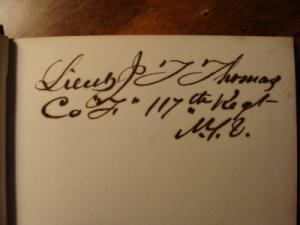 Lieut J "T" Thomas
Co "F" 117th Regt
N.Y.V.